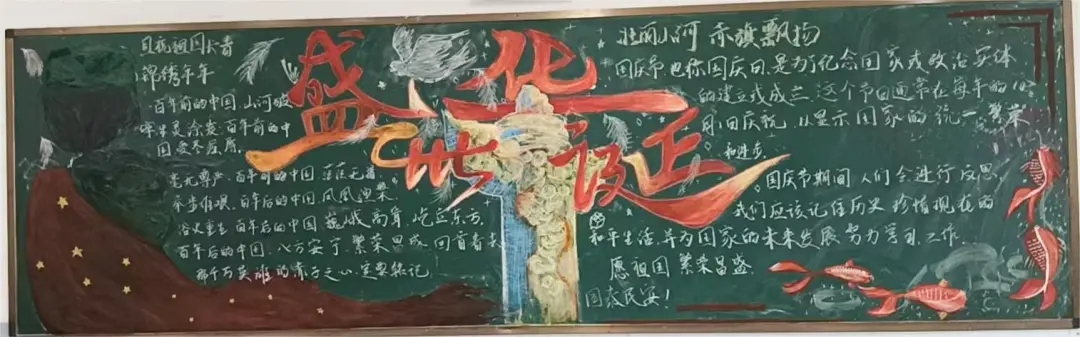 盛世华诞
锦绣年年
百年前的中国,山河破
百年前的中
国受尽屈辱
毫无尊严,百年前的中国
举步维艰,百年后的中国 凤凰迎
浴火重生,百年后的中国 巍峨高耸 屹立东方
百年后的中国,心方安宁,繁荣昌盛,回首看去
那千万英雄的赤子之心,定要铭记!
壮丽山河 赤旗飘扬
国庆节也称国庆日,是为了纪念国家或政治实体
的建立或成立,这个节日通常在每年的10
月1日庆祝,以显示国家的统一、繁荣
和进步
国庆节期间人们会进行反思
我们应该记住历史 珍惜现在的
和平生活,并为国家的未来发展努力学习、工作
愿祖国繁荣昌盛
国泰民安!